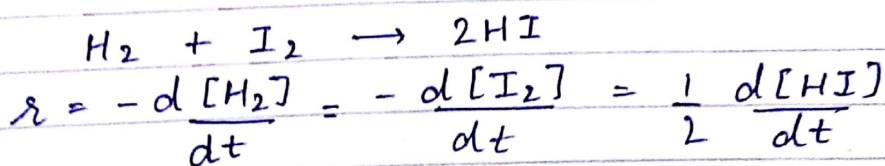 H2 + I2 → 2HI
r = - d[H2]/dt = - d[I2]/dt = 1/2 d[HI]/dt